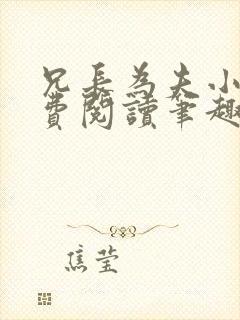 兄長為夫小
費閱讀筆趣
焦莹